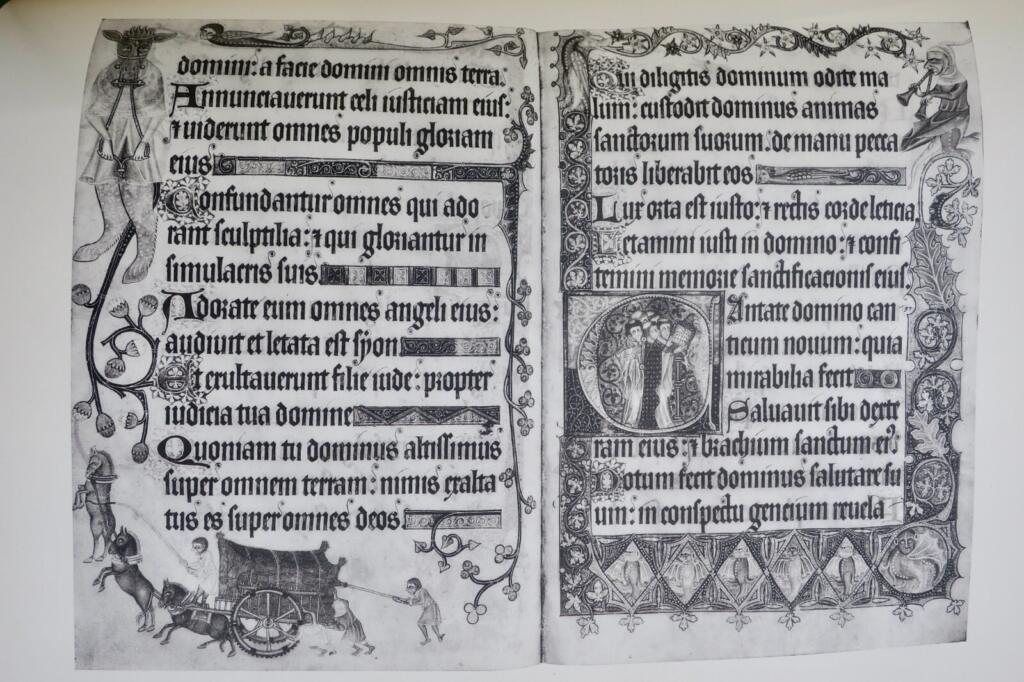 domini: a facie domini omnis terra.
Annunciauerunt celi iusticiam eius:
⁊ uiderunt omnes populi gloriam
eius
Confundantur omnes qui ado
rant sculptilia: ⁊ qui gloriantur in
simulacris suis
Adorate eum omnes angeli eius:
audiuit et letata est syon
Et exultauerunt filie iude: propter
iudicia tua domine
Quoniam tu dominus altissimus
super omnem terram: nimis exalta
tus es super omnes deos.
Qui diligitis dominum odite ma
lum: custodit dominus animas
sanctorum suorum. de manu pecca
toris liberabit eos
Lux orta est iusto: ⁊ rectis corde leticia.
Letamini iusti in domino: ⁊ confi
temini memorie sanctificacionis eius.
Cantate domino can
ticum nouum: quia
mirabilia fecit
Saluauit sibi dexte
ram eius: ⁊ brachium sanctum eiꝰ
Notum fecit dominus salutare su
um: in conspectu gencium reuela